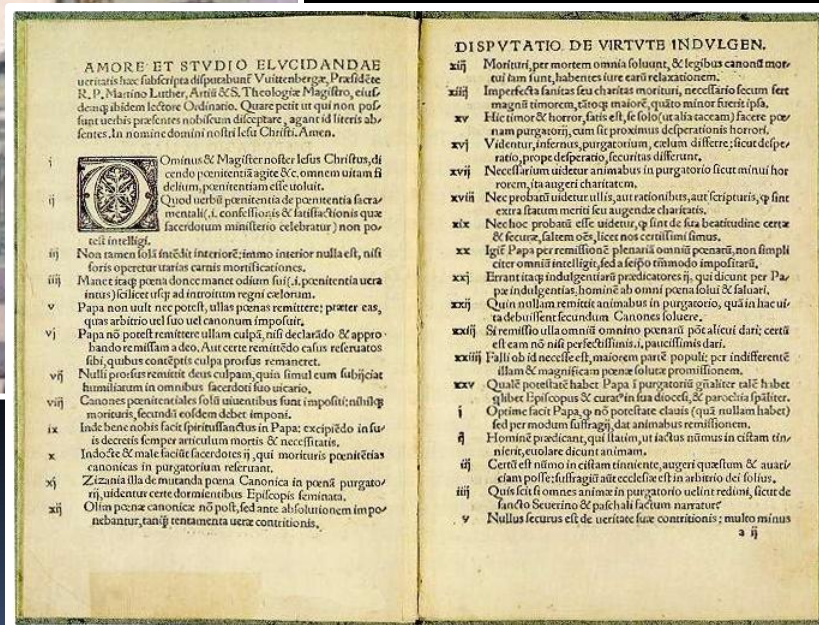 AMORE ET STVDIO ELVCIDANDAE
ueritatis hæc subscripta disputabunt Vuittenbergæ, Præsidẽte
R. P. Martino Luther, Artiũ & S. Theologiæ Magistro, eius/
demq; ibidem lectore Ordinatio. Quare petit ut qui non pos/
sunt uerbis præsentes nobiscum disceptare, agant id literis ab/
sentes. In nomine domini nostri Iesu Christi. Amen.
i Ominus & Magister noster Iesus Christus, di
cendo pœnitentiã agite &c. omnem uitam fi
delium, pœnitentiam esse uoluit.
ij Quod uerbũ pœnitentia de pœnitentia sacra/
mentali (.i. confessionis & satisfactionis quæ
sacerdotum ministerio celebratur) non po/
test intelligi.
iij Non tamen solã intẽdit interiorẽ; immo interior nulla est, nisi
foris operetur uarias carnis mortificationes.
iiij Manet itaq; pœna donec manet odium sui (.i. pœnitentia uera
intus) scilicet usq; ad introitum regni cælorum.
v Papa non uult nec potest, ullas pœnas remittere; præter eas,
quas arbitrio uel suo uel canonum imposuit.
vj Papa nõ potest remittere ullam culpã, nisi declarãdo & appro/
bando remissam a deo. Aut certe remittẽdo casus reseruatos
sibi, quibus contẽptis culpa prorsus remaneret.
vij Nulli prorsus remittit deus culpam, quin simul eum subijciat
humiliatum in omnibus sacerdoti suo uicario.
viij Canones pœnitentiales solũ uiuentibus sunt impositi; nihilq;
morituris, secundũ eosdem debet imponi.
ix Inde bene nobis facit spiritussanctus in Papa; excipiẽdo in su/
is decretis semper articulum mortis & necessitatis.
x Indocte & male faciũt sacerdotes ij, qui morituris pœnitẽtias
canonicas in purgatorium reseruant.
xj Zizania illa de mutanda pœna Canonica in pœnã purgato/
rij, uidentur certe dormientibus Episcopis seminata.
xij Olim pœnæ canonicæ nõ post, sed ante absolutionem impo/
nebantur, tanq̃ tentamenta ueræ contritionis.
DISPVTATIO DE VIRTVTE INDVLGEN.
xiij Morituri, per mortem omnia soluunt, & legibus canonũ mor/
tui iam sunt, habentes iure earũ relaxationem.
xiiij Imperfecta sanitas seu charitas morituri, necessario secum fert
magnũ timorem, tãtoq; maiorẽ, quãto minor fuerit ipsa.
xv Hic timor & horror, satis est, se solo (ut alia taceam) facere pœ/
nam purgatorij, cum sit proximus desperationis horrori.
xvj Videntur, infernus, purgatorium, cælum differre; sicut despe/
ratio, prope desperatio, securitas differunt.
xvij Necessarium uidetur animabus in purgatorio sicut minui hor
rorem, ita augeri charitatem.
xviij Nec probatũ uidetur ullis, aut rationibus, aut scripturis, q̃ sint
extra statum meriti seu augendæ charitatis.
xix Nec hoc probatũ esse uidetur, q̃ sint de sua beatitudine certæ
& securæ, saltem oẽs, licet nos certissimi simus.
xx Igit̃ Papa per remissionẽ plenariã omniũ pœnarũ, non simpli
citer omniũ intelligit, sed a seipso tm̃modo impositarũ.
xxj Errant itaq; indulgentiarũ prædicatores ij, qui dicunt per Pa/
pæ indulgentias, hominẽ ab omni pœna solui & saluari.
xxij Quin nullam remittit animabus in purgatorio, quã in hac ui/
ta debuissent secundum Canones soluere.
xxiij Si remissio ulla omniũ omnino pœnarũ põt alicui dari; certũ
est eam nõ nisi perfectissimis .i. paucissimis dari.
xxiiij Falli ob id necesse est, maiorem partẽ populi; per indifferentẽ
illam & magnificam pœnæ solutæ promissionem.
xxv Qualẽ potestatẽ habet Papa ĩ purgatoriũ gñaliter talẽ habet
q̃libet Episcopus & curat9 in sua diocesi, & parochia spãliter.
i Optime facit Papa, q̃ nõ potestate clauis (quã nullam habet)
sed per modum suffragij, dat animabus remissionem.
ij Hominẽ prædicant, qui statim, ut iactus nũmus in cistam tin/
nierit, euolare dicunt animam.
iij Certũ est nũmo in cistam tinniente, augeri quæstum & auari/
ciam posse; suffragiũ aũt ecclesiæ est in arbitrio dei solius.
iiij Quis scit si omnes animæ in purgatorio uelint redimi, sicut de
sancto Seuerino & paschali factum narratur?
v Nullus securus est de ueritate suæ contritionis; multo minus
a ij